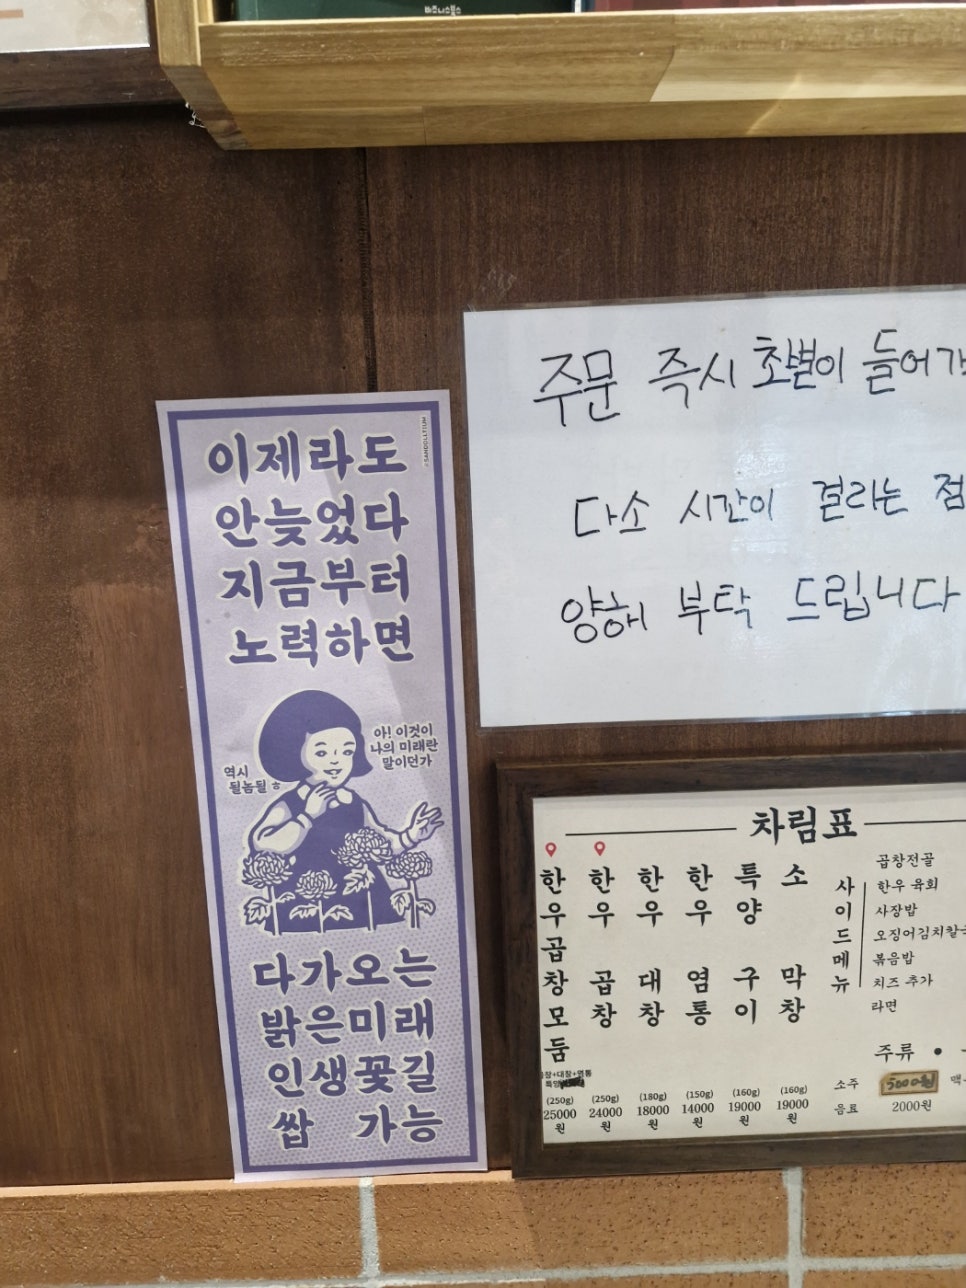 비즈니스북스
이제라도
안늦었다
지금부터
노력하면
SANDOLLTIUM
아! 이것이
나의 미래란
말이던가
역시
될놈될ㅎ
다가오는
밝은미래
인생꽃길
쌉 가능
주문 즉시 초벌이 들어가
다소 시간이 걸리는 점
양해 부탁 드립니다
차림표
한우곱창모둠
(250g)
25000원
한우 곱창
(250g)
24000원
한우 대창
(180g)
18000원
한우 염통
(150g)
14000원
특양 구이
(160g)
19000원
소 막창
(160g)
19000원
사이드메뉴
곱창전골
한우 육회
사장밥
오징어김치칼국
볶음밥
치즈 추가
라면
주류 •
소주 5000원
맥
음료 2000원